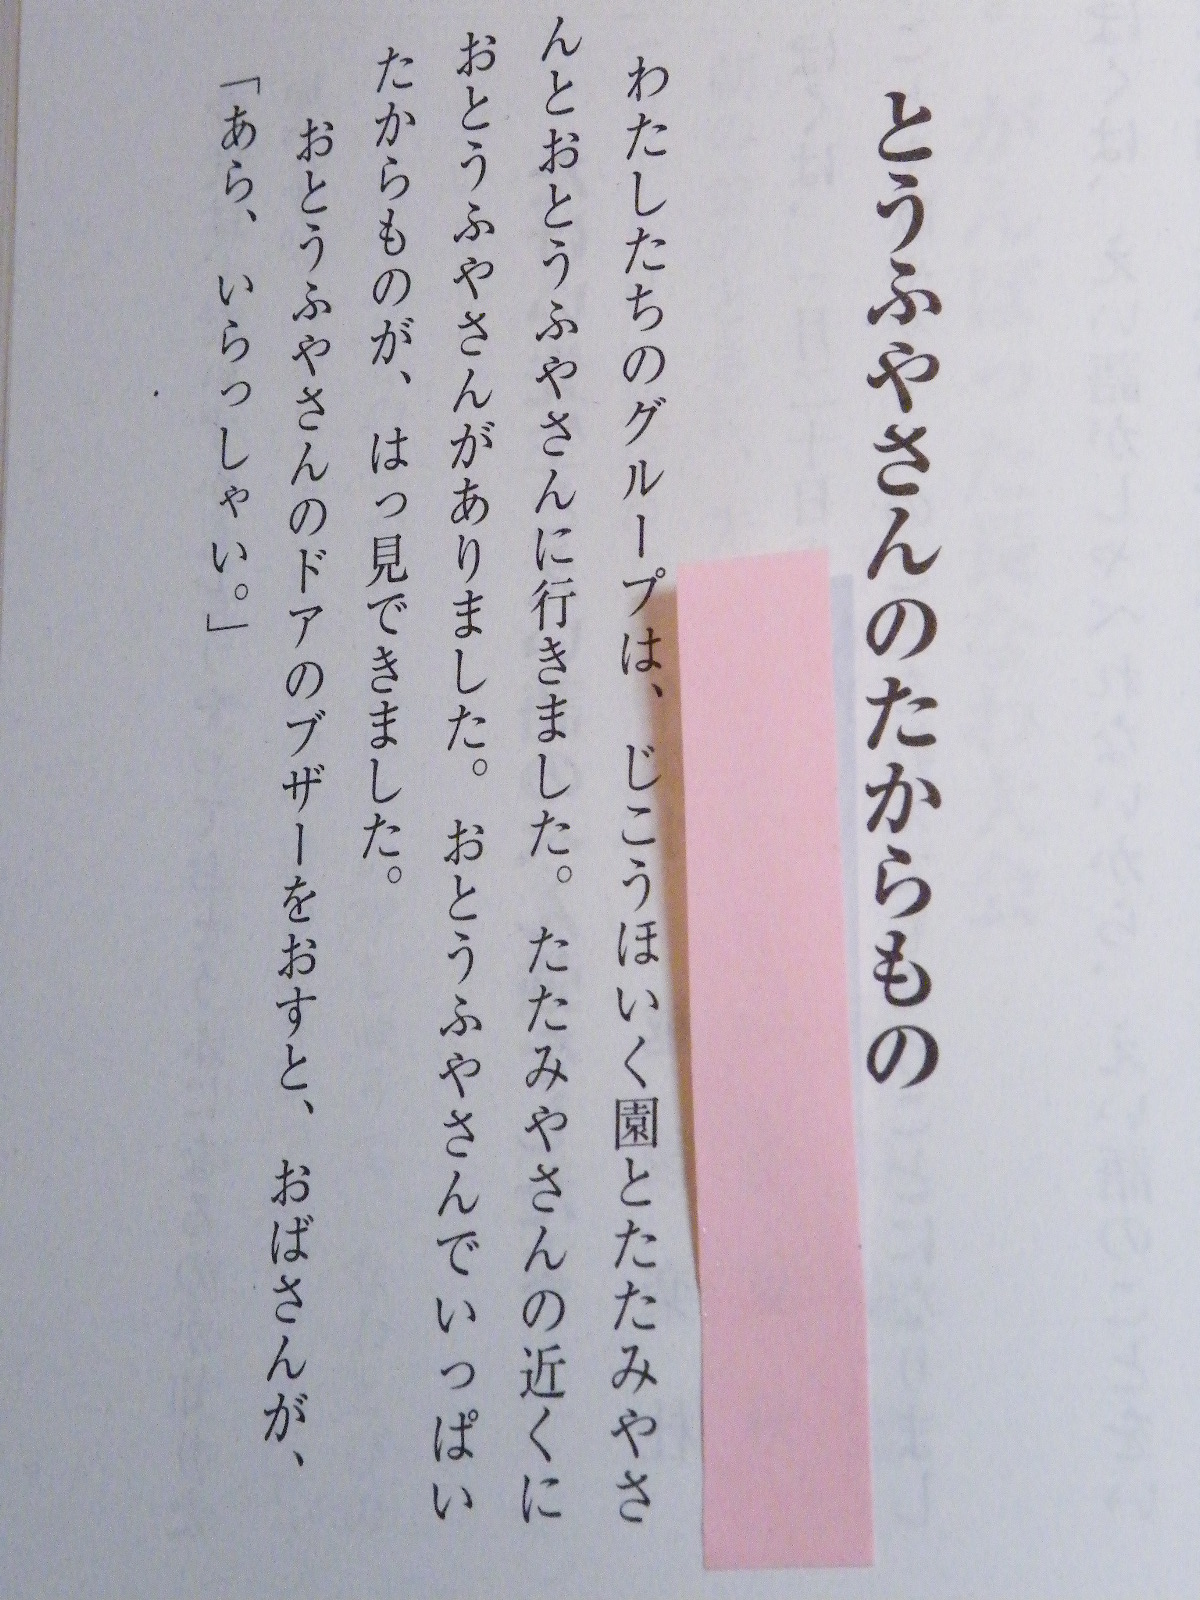 とうふやさんのたからもの
わたしたちのグループは、じこうほいく園とたたみやさ
んとおとうふやさんに行きました。たたみやさんの近くに
おとうふやさんがありました。おとうふやさんでいっぱい
たからものが、はっ見できました。
おとうふやさんのドアのブザーをおすと、おばさんが、
「あら、いらっしゃい。」